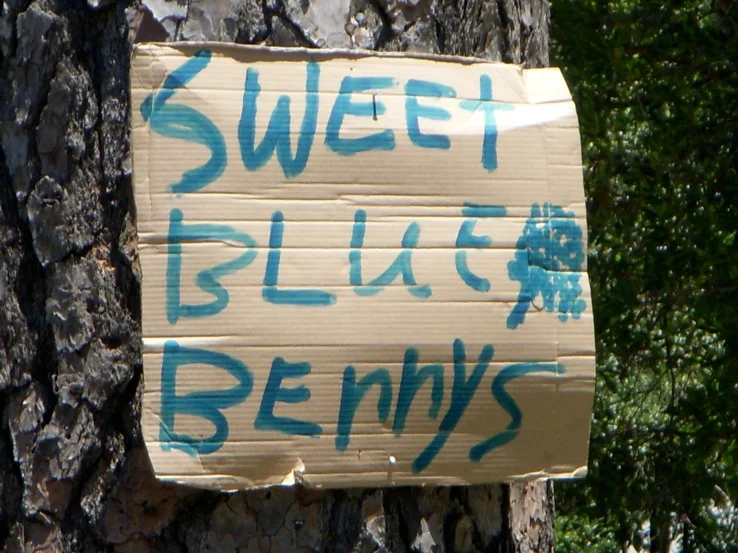 SWEET
BLUE
BErrYS